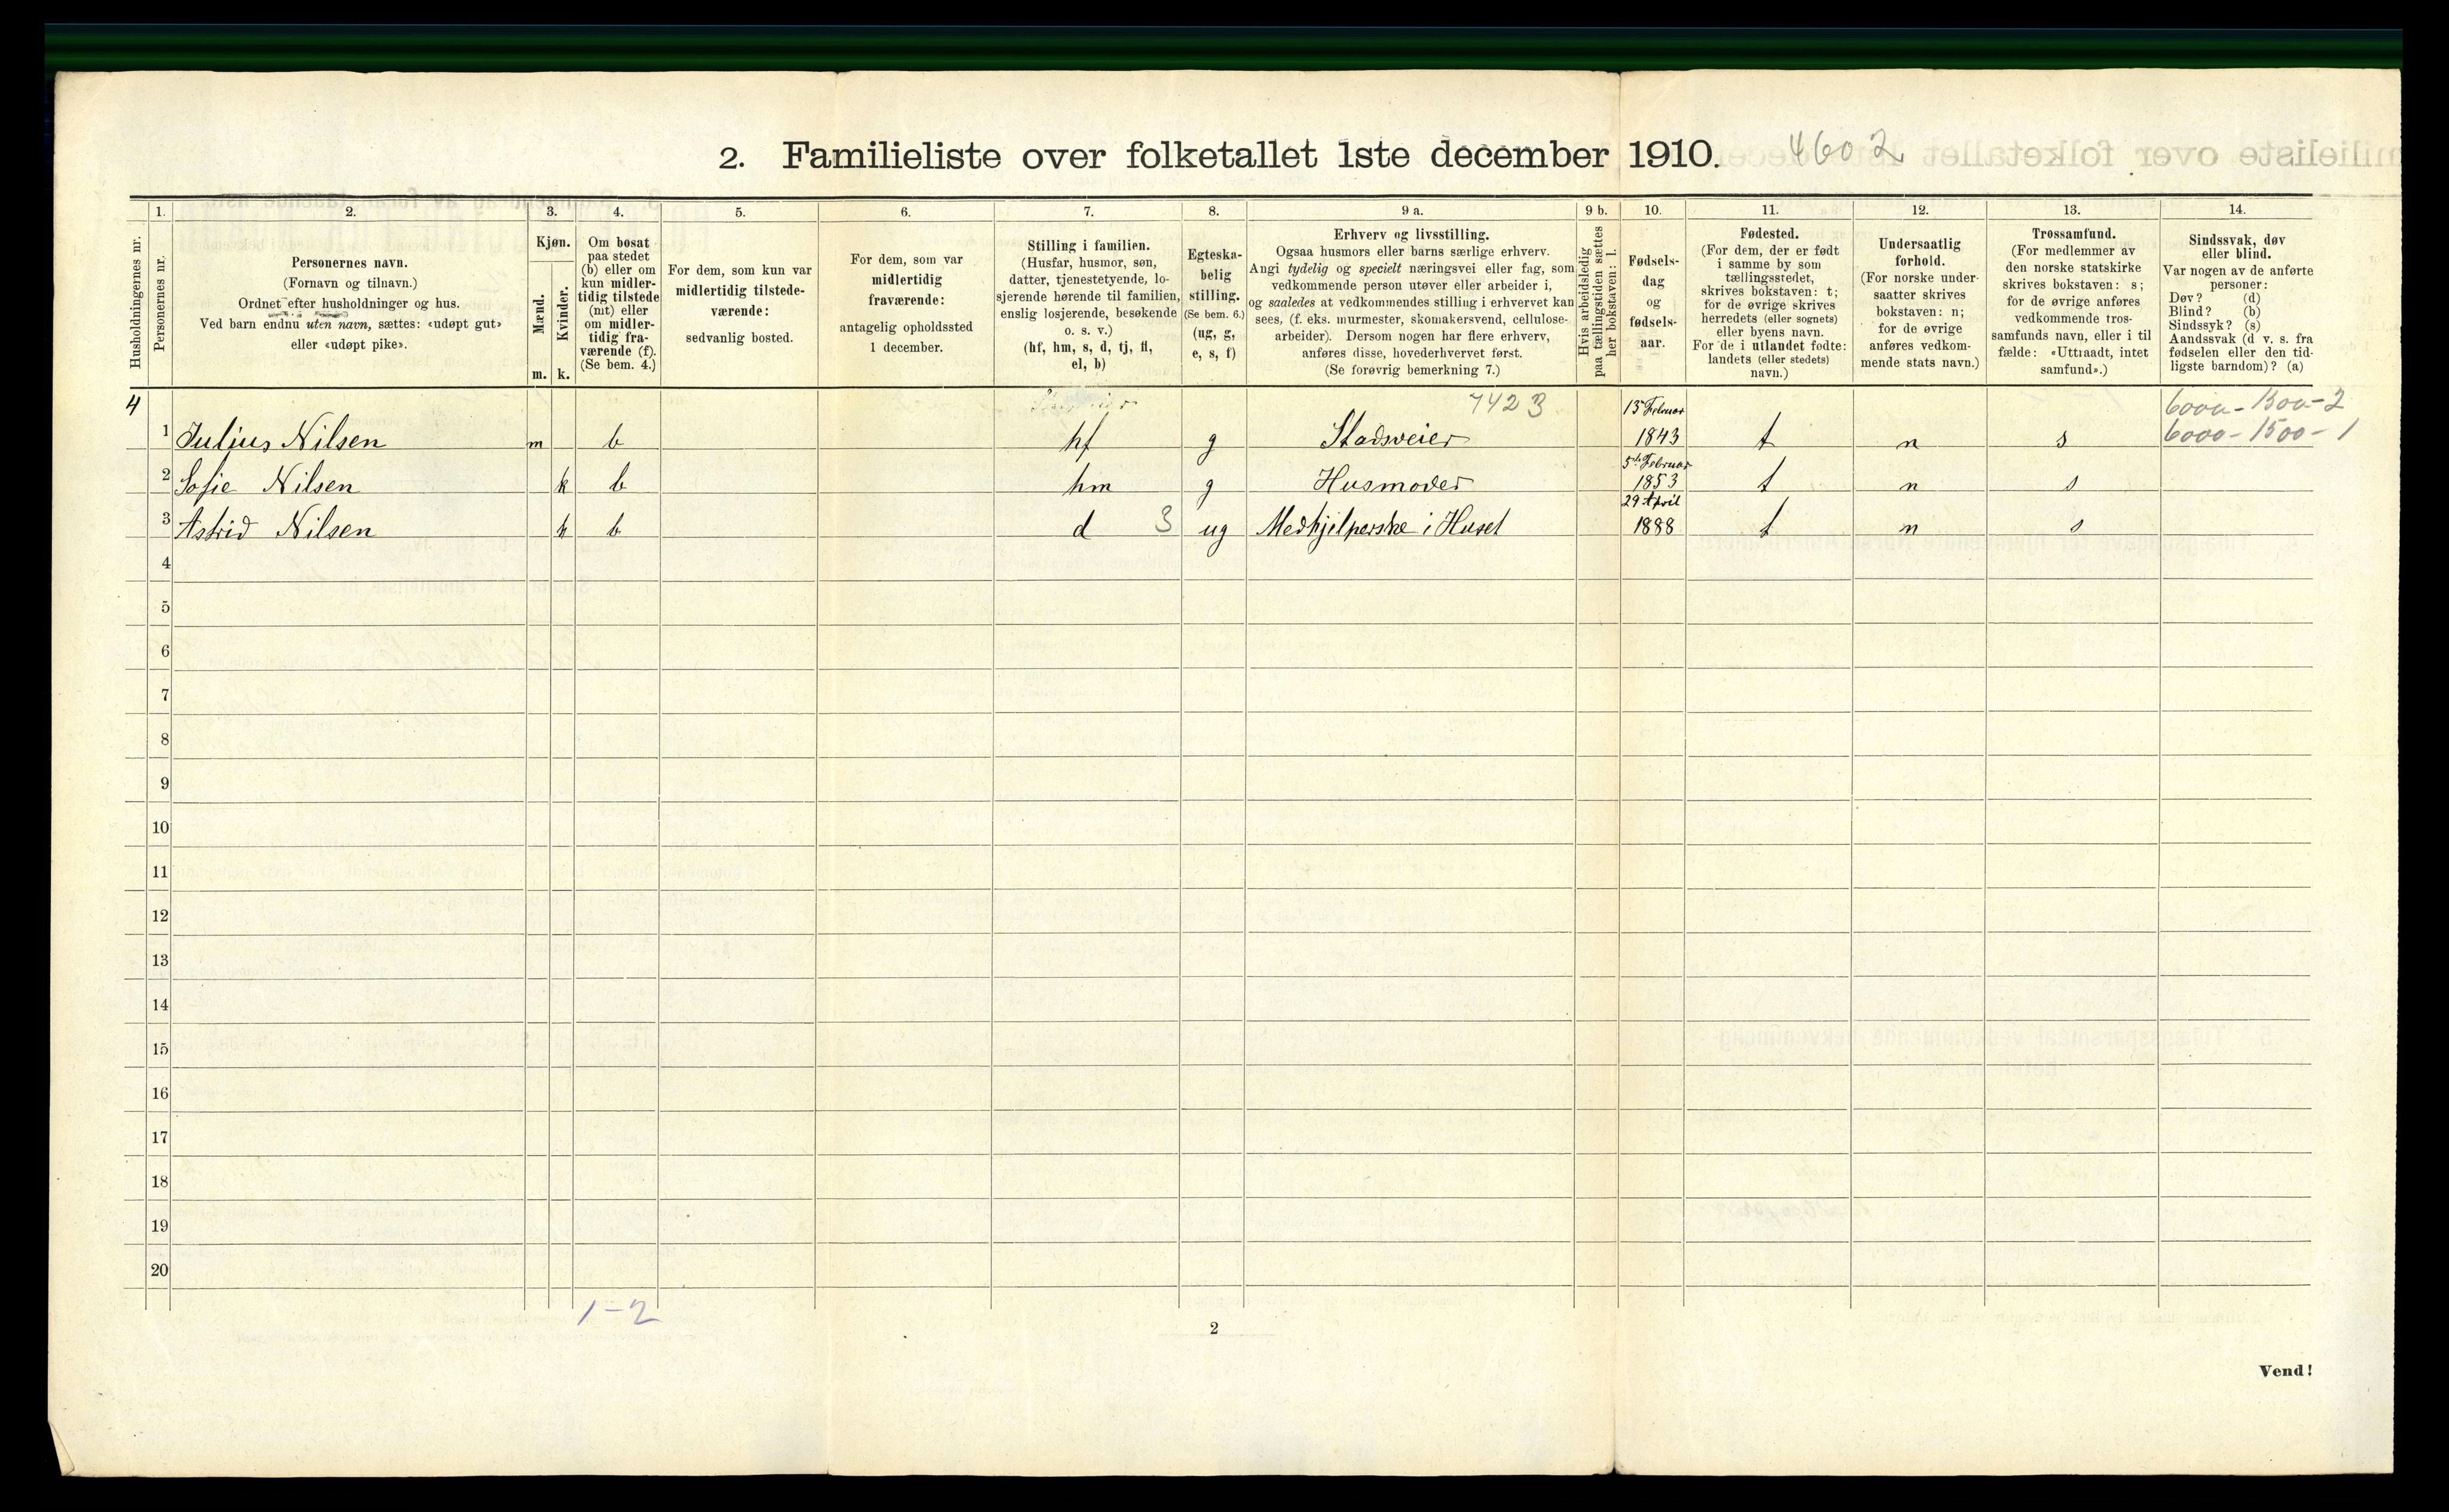 2. Familieliste over folketallet 1ste december 1910. 4602
Husholdningernes nr.
1.
Personernes nr.
2.
Personernes navn.
(Fornavn og tilnavn.)
Ordnet efter husholdninger og hus.
Ved barn endnu uten navn, sættes: «udøpt gut»
eller «udøpt pike».
3.
Kjøn.
Mænd.
Kvinder.
m. k.
4.
Om bosat
paa stedet
(b) eller om
kun midler-
tidig tilstede
(mt) eller
om midler-
tidig fra-
værende (f).
(Se bem. 4.)
5.
For dem, som kun var
midlertidig tilstede-
værende:
sedvanlig bosted.
6.
For dem, som var
midlertidig
fraværende:
antagelig opholdssted
1 december.
7.
Stilling i familien.
(Husfar, husmor, søn,
datter, tjenestetyende, lo-
sjerende hørende til familien,
enslig losjerende, besøkende
o. s. v.)
(hf, hm, s, d, tj, fl,
el, b)
8.
Egteska-
belig
stilling.
(Se bem. 6.)
(ug, g,
e, s, f)
9 a.
Erhverv og livsstilling.
Ogsaa husmors eller barns særlige erhverv.
Angi tydelig og specielt næringsvei eller fag, som
vedkommende person utøver eller arbeider i,
og saaledes at vedkommendes stilling i erhvervet kan
sees, (f. eks. murmester, skomakersvend, cellulose-
arbeider). Dersom nogen har flere erhverv,
anføres disse, hovederhvervet først.
(Se forøvrig bemerkning 7.)
9 b.
Hvis arbeidsledig
paa tællingstiden sættes
her bokstaven: l.
10.
Fødsels-
dag
og
fødsels-
aar.
11.
Fødested.
(For dem, der er født
i samme by som
tællingsstedet,
skrives bokstaven: t;
for de øvrige skrives
herredets (eller sognets)
eller byens navn.
For de i utlandet fødte:
landets (eller stedets)
navn.)
12.
Undersaatlig
forhold.
(For norske under-
saatter skrives
bokstaven: n;
for de øvrige
anføres vedkom-
mende stats navn.)
13.
Trossamfund.
(For medlemmer av
den norske statskirke
skrives bokstaven: s;
for de øvrige anføres
vedkommende tros-
samfunds navn, eller i til-
fælde: «Uttraadt, intet
samfund».)
14.
Sindssvak, døv
eller blind.
Var nogen av de anførte
personer:
Døv? (d)
Blind? (b)
Sindssyk? (s)
Aandssvak (d v. s. fra
fødselen eller den tid-
ligste barndom)? (a)
4 7423 15 Februar 6000-1500-2
1 Julius Nilsen m b hf g Stadsveier 1843 t n s 6000-1500-1
5te Februar
2 Sofie Nilsen k b hm g Husmoder 1853 t n s
29 April
3 Astrid Nilsen k b d 3 ug Medhjelperske i Huset 1888 t n s
4
5
6
7
8
9
10
11
12
13
14
15
16
17
18
19
20
1-2
2
Vend!